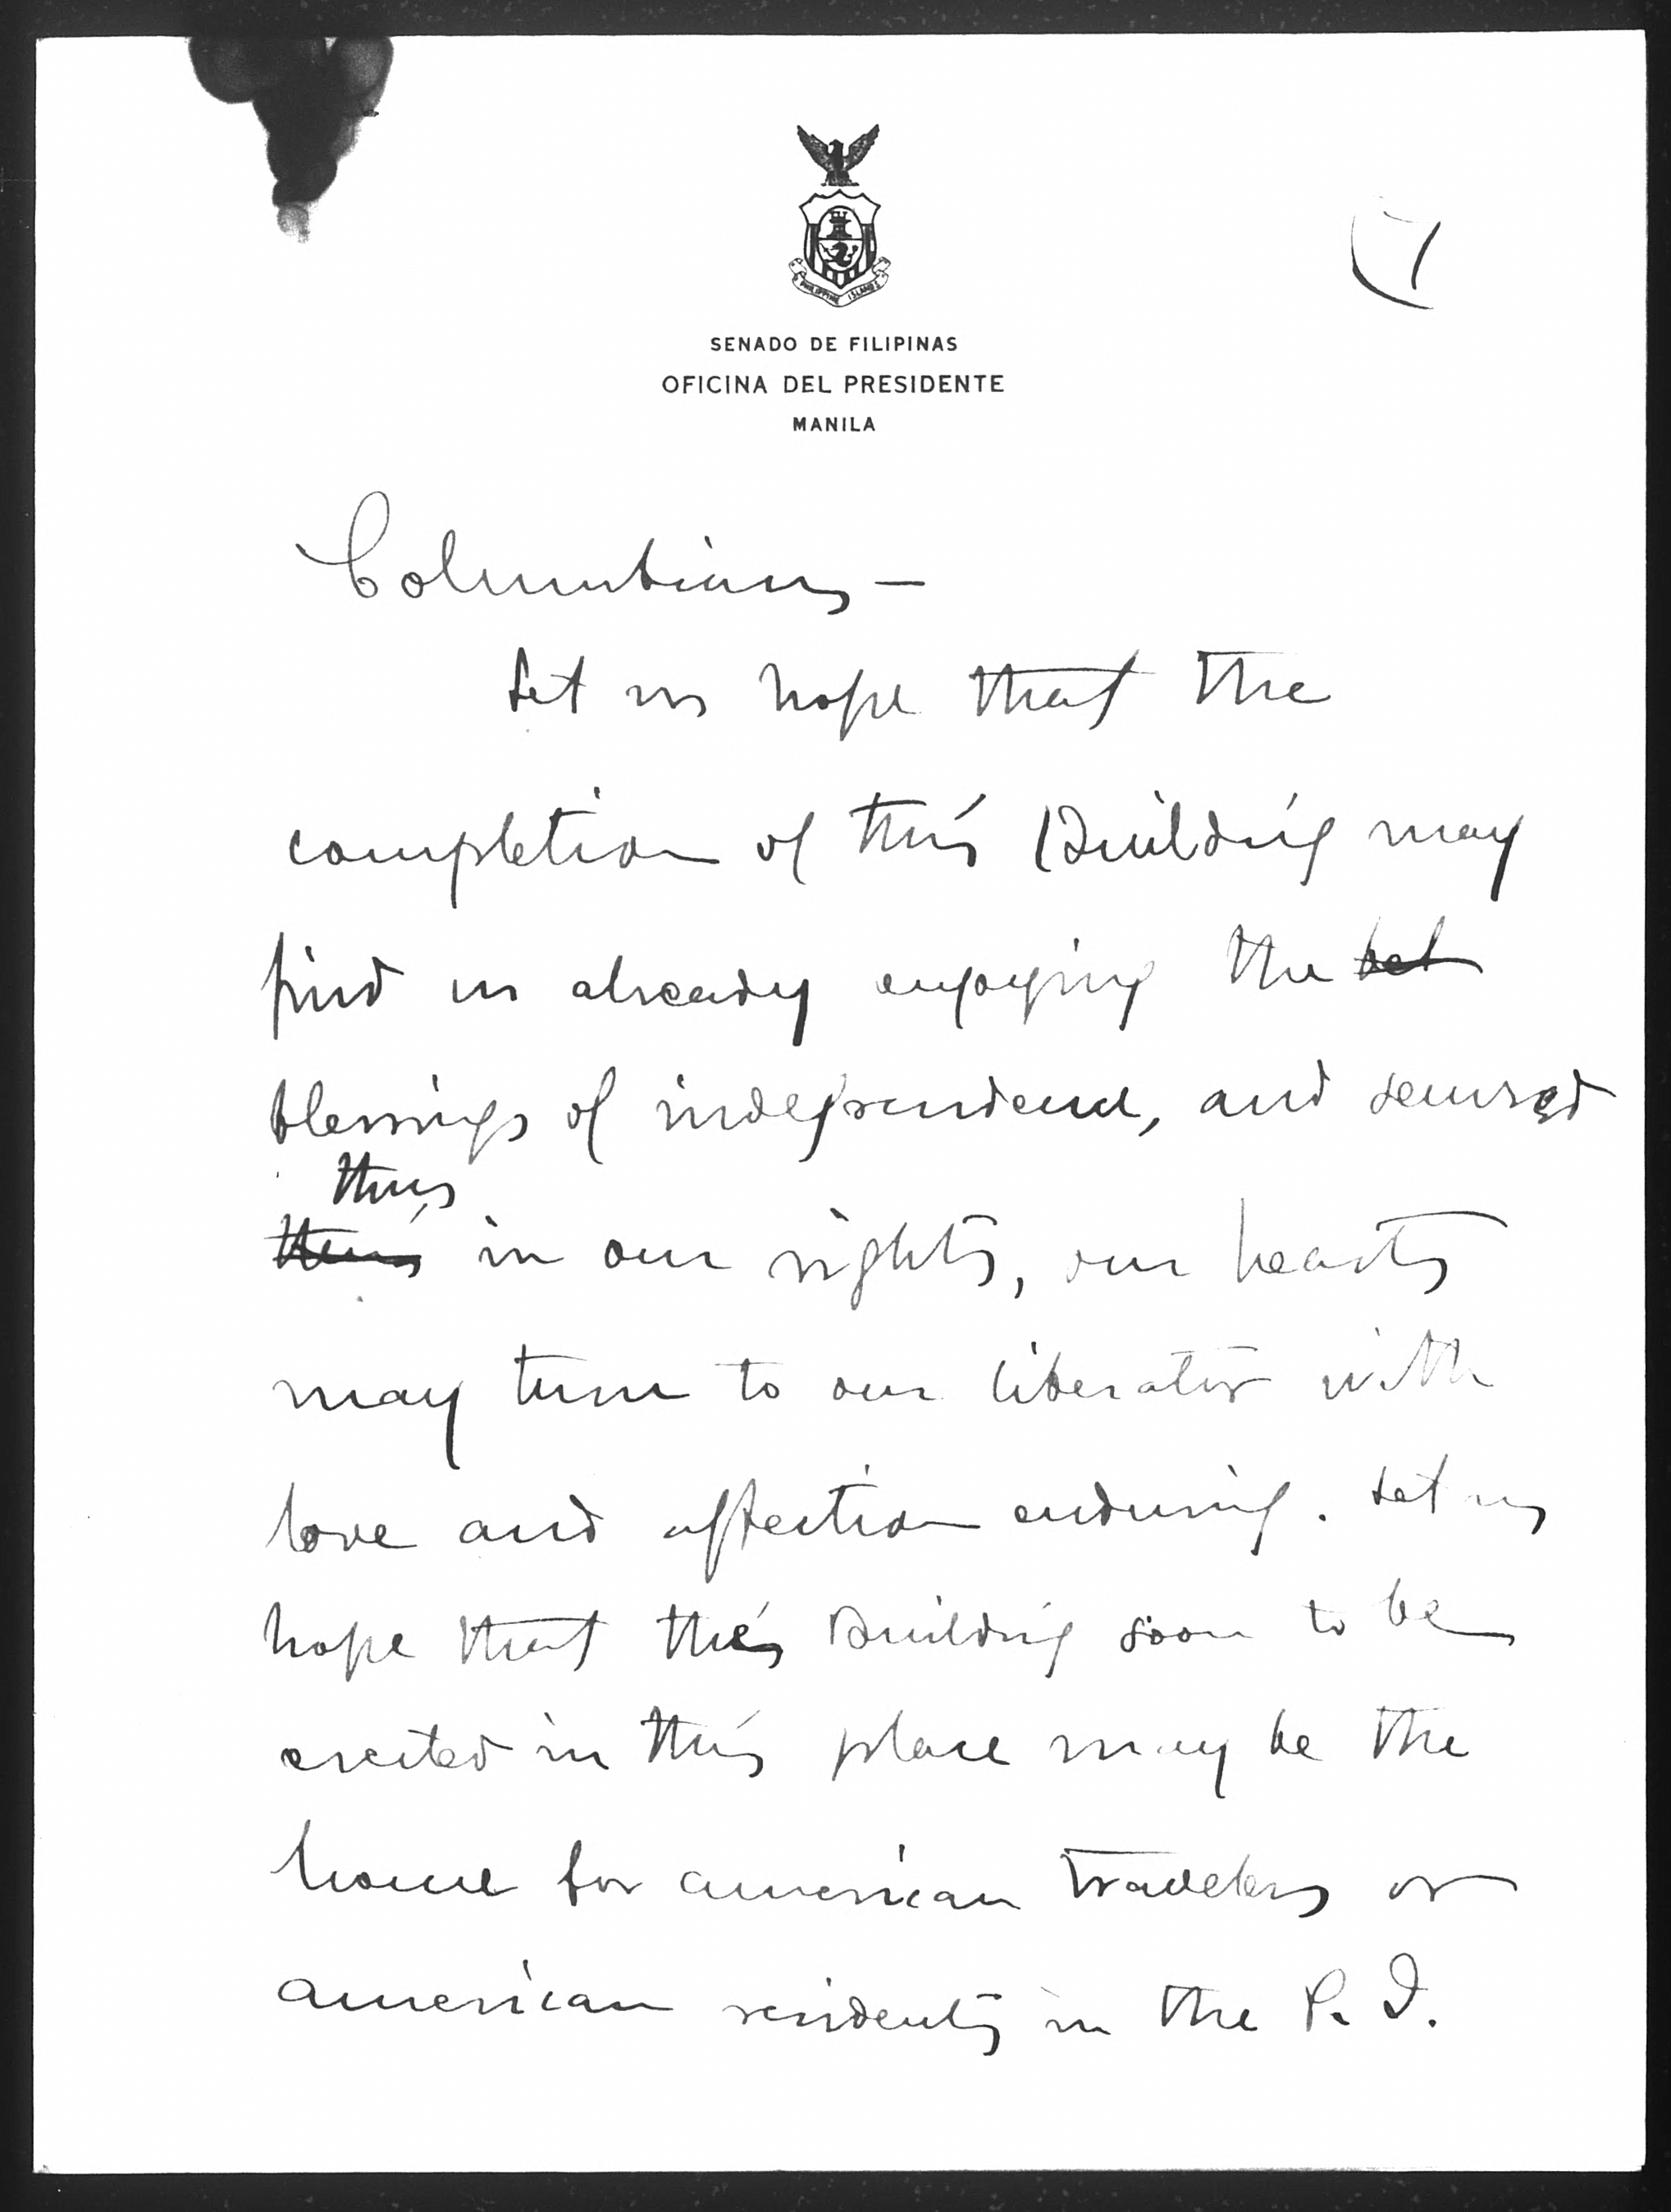 PHILIPPINE ISLANDS
7
SENADO DE FILIPINAS
OFICINA DEL PRESIDENTE
MANILA
Columbians —
Let us hope that the
completion of this Building may
find us already enjoying the
blessings of independence, and secured
thus
in our rights, our hearts
may turn to our liberator with
love and affection enduring. Let us
hope that this Building soon to be
erected in this place may be the
home for american travelers or
american residents in the P. I.